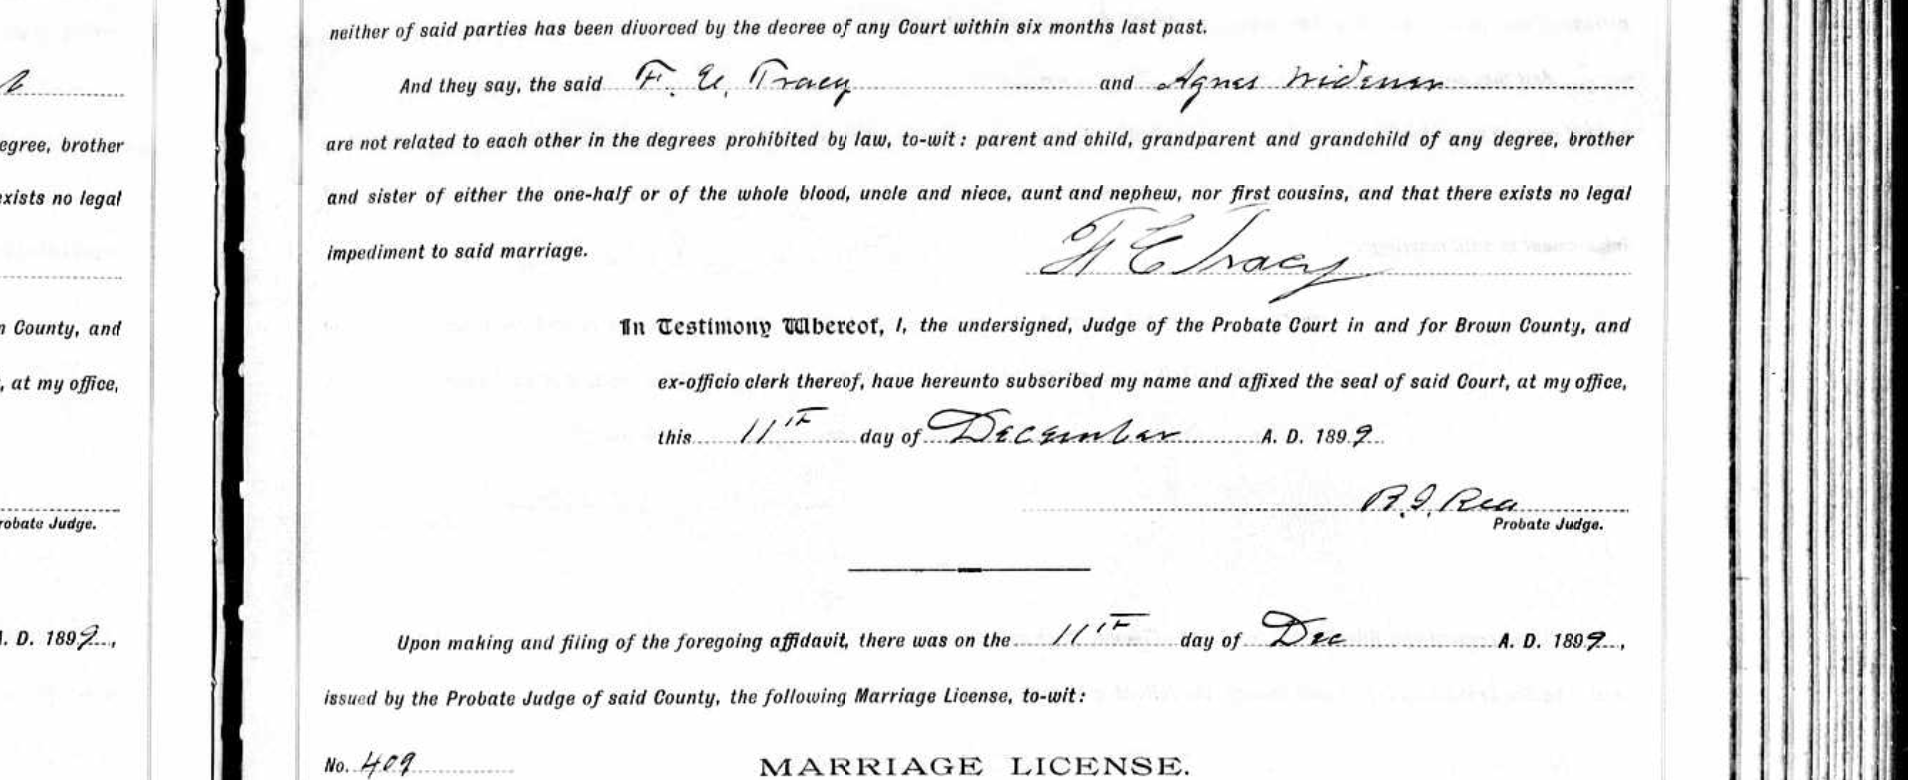 neither of said parties has been divorced by the decree of any Court within six months last past.
And they say, the said F. E. Tracy and Agnes Widener
are not related to each other in the degrees prohibited by law, to-wit: parent and child, grandparent and grandchild of any degree, brother
and sister of either the one-half or of the whole blood, uncle and niece, aunt and nephew, nor first cousins, and that there exists no legal
impediment to said marriage. F E Tracy
In Testimony Whereof, I, the undersigned, Judge of the Probate Court in and for Brown County, and
ex-officio clerk thereof, have hereunto subscribed my name and affixed the seal of said Court, at my office,
this 11th day of December A. D. 1899.
R. I. Rea
Probate Judge.
Upon making and filing of the foregoing affidavit, there was on the 11th day of Dec A. D. 1899,
issued by the Probate Judge of said County, the following Marriage License, to-wit:
No. 409 MARRIAGE LICENSE.
egree, brother
exists no legal
n County, and
, at my office,
robate Judge.
. D. 1899,